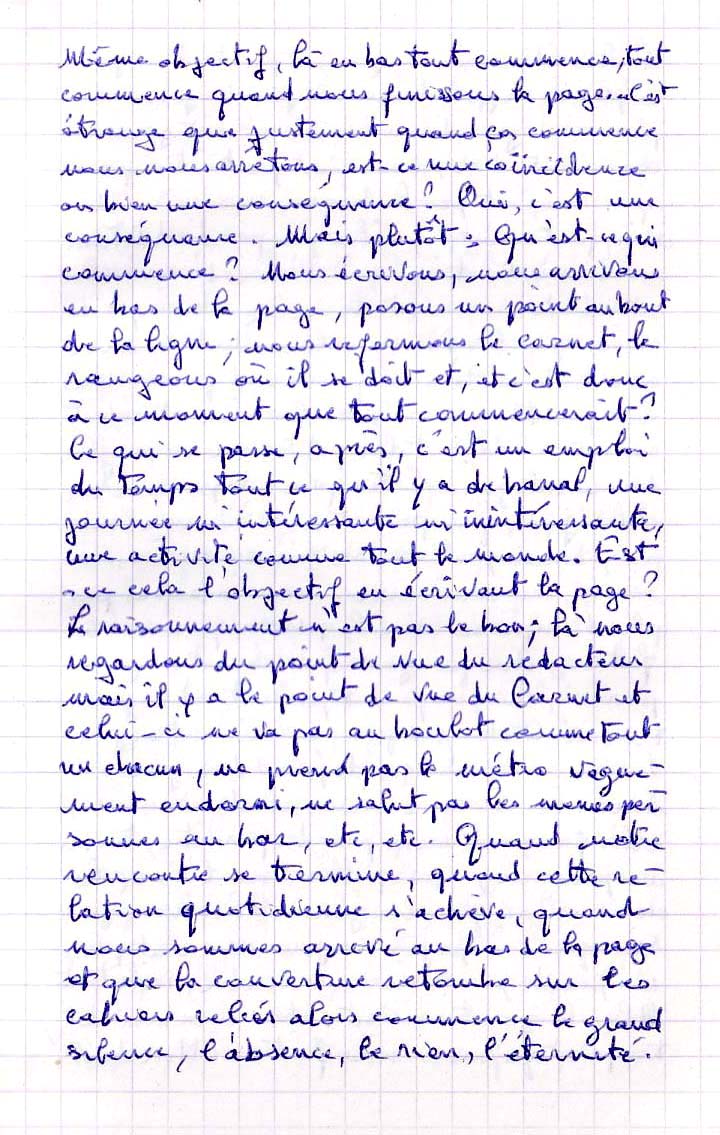 Même objectif, là en bas tout commence, tout
commence quand nous finissons la page. C'est
étrange que justement quand ça commence
nous nous arrêtons, est-ce une coïncidence
ou bien une conséquence ? Oui, c'est une
conséquence. Mais plutôt : Qu'est-ce qui
commence ? Nous écrivons, nous arrivons
en bas de la page, posons un point au bout
de la ligne ; nous refermons le carnet, le
rangeons où il se doit et, et c'est donc
à ce moment que tout commencerait ?
Ce qui se passe, après, c'est un emploi
du temps tout ce qu'il y a de banal, une
journée ni intéressante ni inintéressante,
une activité comme tout le monde. Est
-ce cela l'objectif en écrivant la page ?
Le raisonnement n'est pas le bon ; là nous
regardons du point de vue du rédacteur
mais il y a le point de vue du Carnet et
celui-ci ne va pas au boulot comme tout
un chacun, ne prend pas le métro vague-
ment endormi, ne salut pas les mêmes per-
sonnes au bar, etc, etc. Quand notre
rencontre se termine, quand cette re-
lation quotidienne s'achève, quand
nous sommes arrivé au bas de la page
et que la couverture retombe sur les
cahiers reliés alors commence le grand
silence, l'absence, le rien, l'éternité.